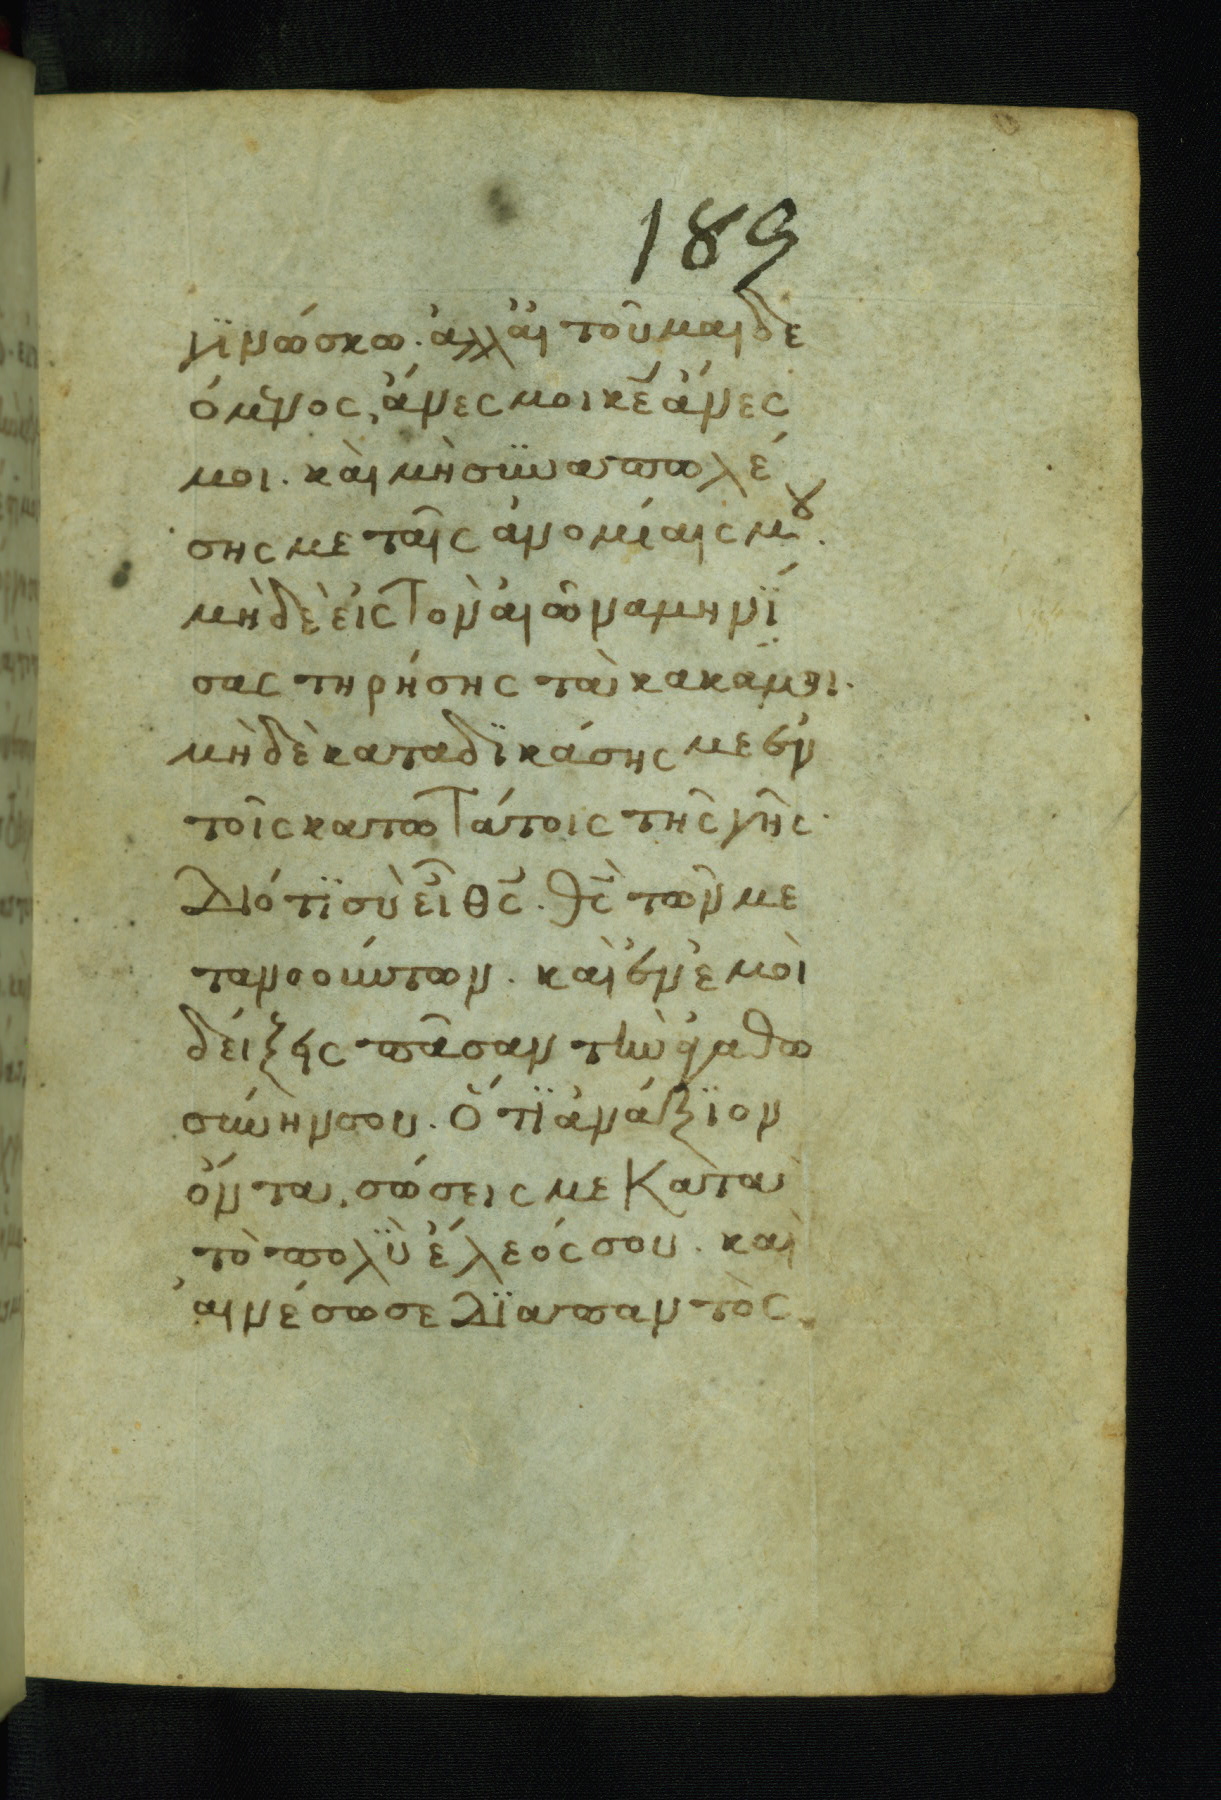 189
γϊνώσκω. ἀλλ' αἰτοῦμαι δε
όμενος, ἄνες μοι κε ἄνες
μοι. καὶ μὴ συναπολέ
σης με ταῖς ἀνομίαις μου.
μὴ δὲ εἰς τὸν αἰῶνα μηνΐ
σας τηρήσης τὰ κακά μοι.
μὴ δὲ καταδϊκάσης με ἐν
τοῖς κατωτάτοις τῆς γῆς.
Διότϊ σὺ εἶ θς. θς τῶν με
τανοούντων. καὶ ἐν ἐμοὶ
δείξης πᾶσαν τὴν ἀγαθω
σύνην σου. Ὅτϊ ἀνάξϊον
ὄντα, σώσεις με κατὰ
τὸ πολὺ ἔλεός σου. καὶ
αἰνέσω σε δϊαπαντὸς